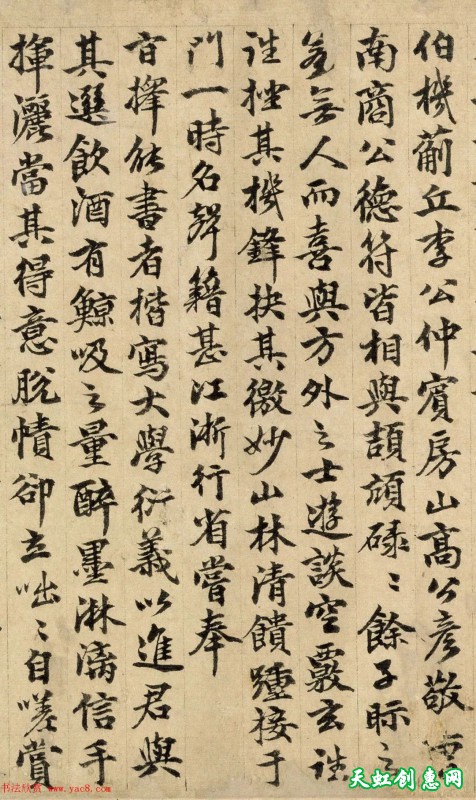 伯機薊丘李公仲賓房山高公彥敬雲
南商公德符皆相與頡頏碌〻餘子眎之
若無人而喜與方外之士遊談空覈玄詆
挫其機鋒抉其微妙山林清饋踵接于
門一時名聲籍甚江浙行省嘗奉
旨擇能書者楷寫大學衍義以進君與
其選飲酒有鯨吸之量醉墨淋漓信手
揮灑當其得意脫幘卻立咄〻自嗟賞
书法欣赏 www.yac8.com
天虹创意网